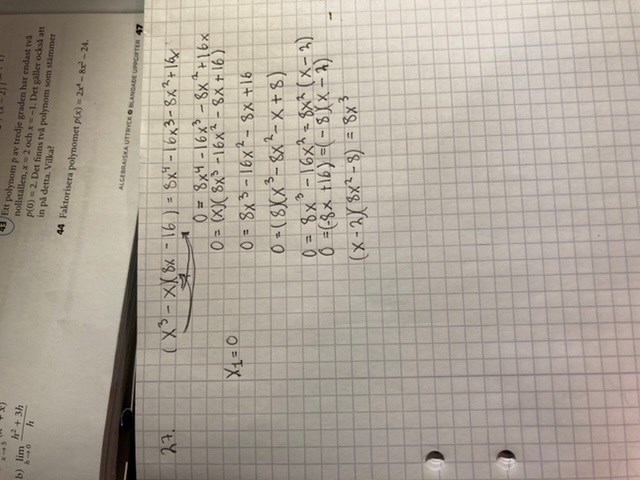 43 Ett polynom p av tredje graden har endast två
nollställen, x = 2 och x = −1. Det gäller också att
p(0) = 2. Det finns två polynom som stämmer
in på detta. Vilka?
44 Faktorisera polynomet p(x) = 2x⁴ − 8x² − 24.
ALGEBRAISKA UTTRYCK BLANDADE UPPGIFTER 47
b) lim h² + 3h
h→0 h
27. (x³ − x)(8x − 16) = 8x⁴ − 16x³ − 8x² + 16x
0 = 8x⁴ − 16x³ − 8x² + 16x
0 = (x)(8x³ − 16x² − 8x + 16)
x₁ = 0
0 = 8x³ − 16x² − 8x + 16
0 = (8)(x³ − 8x² − x + 8)
0 = 8x³ − 16x² = 8x² (x − 2)
0 = (−8x + 16) = (−8)(x − 2)
(x − 2)(8x² − 8) = 8x³